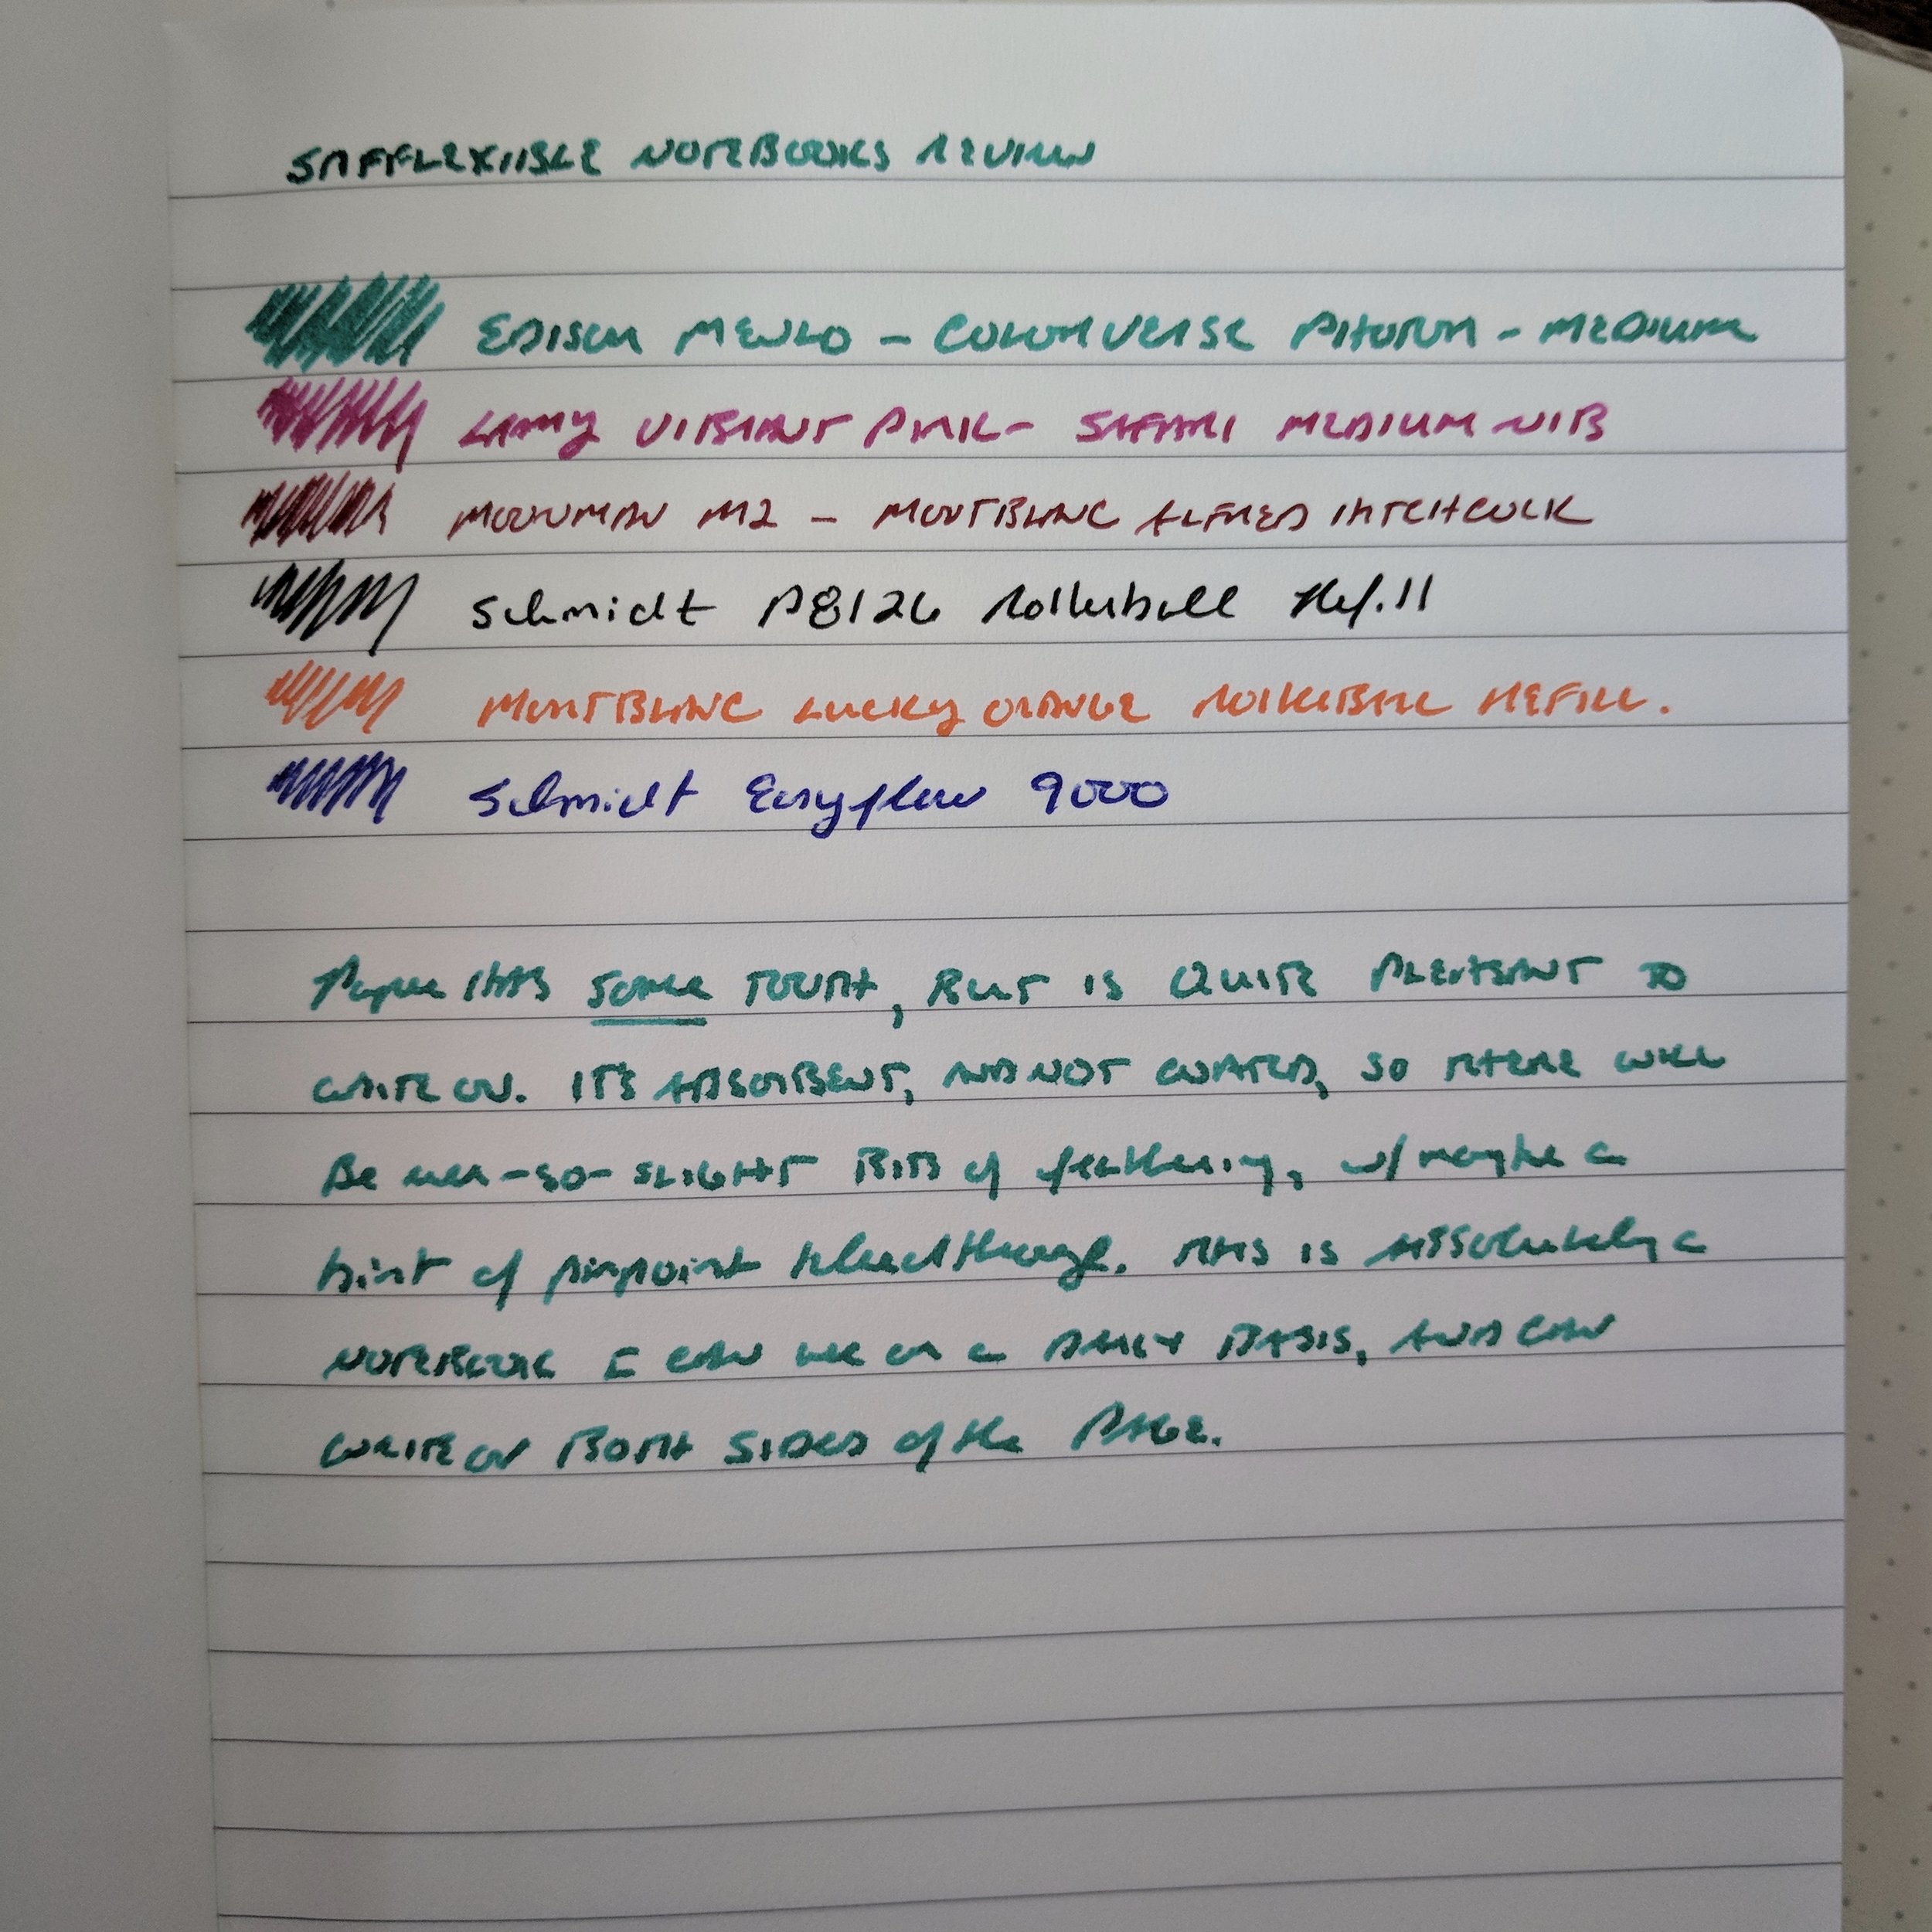 SAFFLEXIIBLE NOTEBOOKS REVIEW
EDISON MENLO - COLORVERSE PHOTON - MEDIUM
LAMY VIBRANT PINK - SAFARI MEDIUM NIB
MOONMAN M2 - MONTBLANC ALFRED HITCHCOCK
Schmidt P8126 Rollerball Refill
MONTBLANC LUCKY ORANGE ROLLERBALL REFILL.
Schmidt Easyflow 9000
Paper HAS SOME TOOTH, BUT IS QUITE PLEASANT TO
WRITE ON. IT'S ABSORBENT, AND NOT COATED, SO THERE WILL
Be ever-so-SLIGHT BITS of feathering, w/ maybe a
hint of pinpoint bleedthrough. THIS IS ABSOLUTELY a
NOTEBOOK I CAN use on a DAILY BASIS, AND CAN
WRITE ON BOTH SIDES of the PAGE.